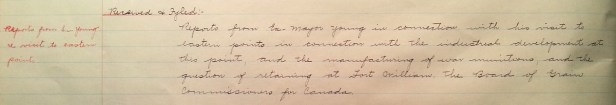 Received & Fyled:-
Reports from Ea. Young
re visit to eastern
points
Reports from Ea. Major Young in connection with his visit to
eastern points in connection with the industrial development at
this point, and the manufacturing of war munitions, and the
question of retaining at Fort William, the Board of Grain
Commissioners for Canada.